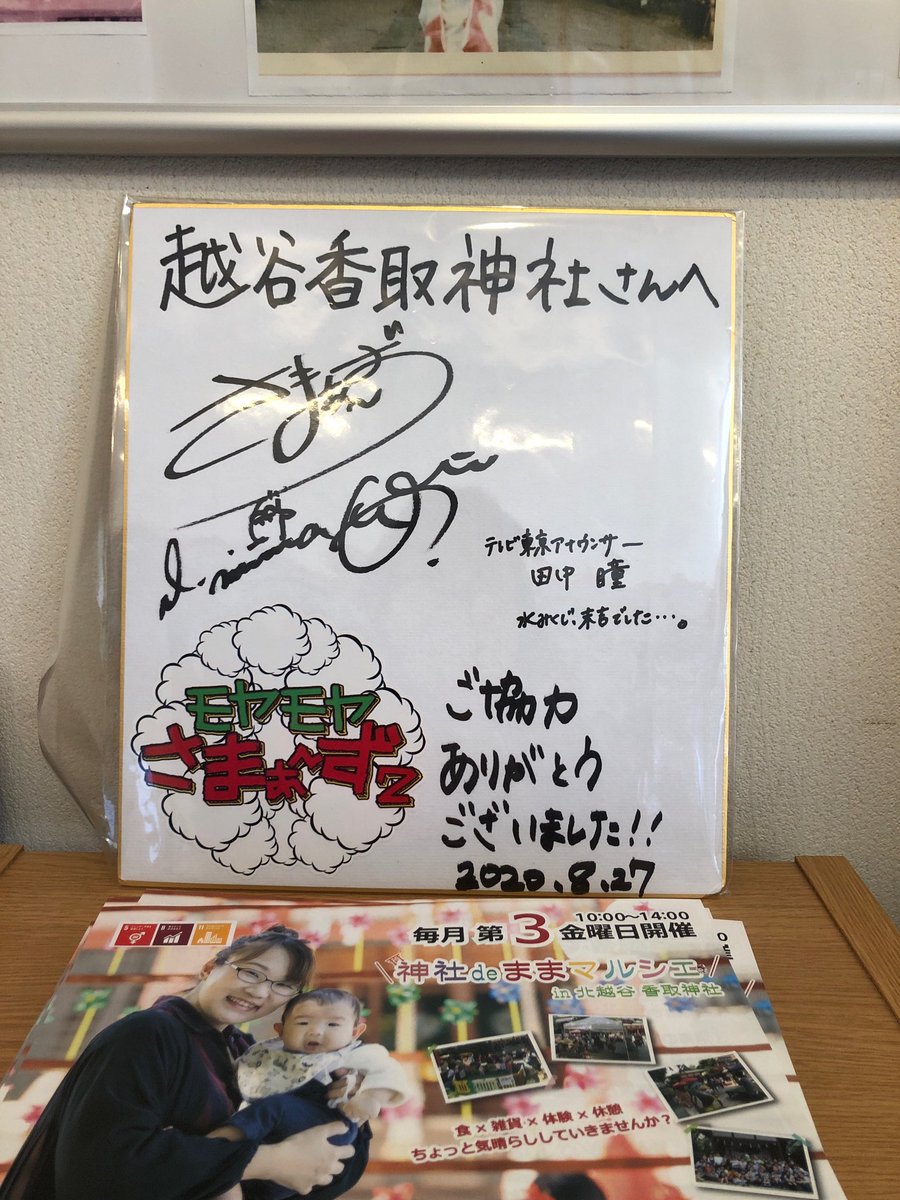 越谷香取神社さんへ
さまぁ〜ず
テレビ東京アナウンサー
田中 瞳
水みくじ、末吉でした…。
モヤモヤ
さまぁ〜ず2
ご協力
ありがとう
ございました!!
2020.8.27
毎月 第3金曜日開催
10:00〜14:00
神社deままマルシェ
in 北越谷 香取神社
食×雑貨×体験×休憩
ちょっと気晴らししていきませんか?